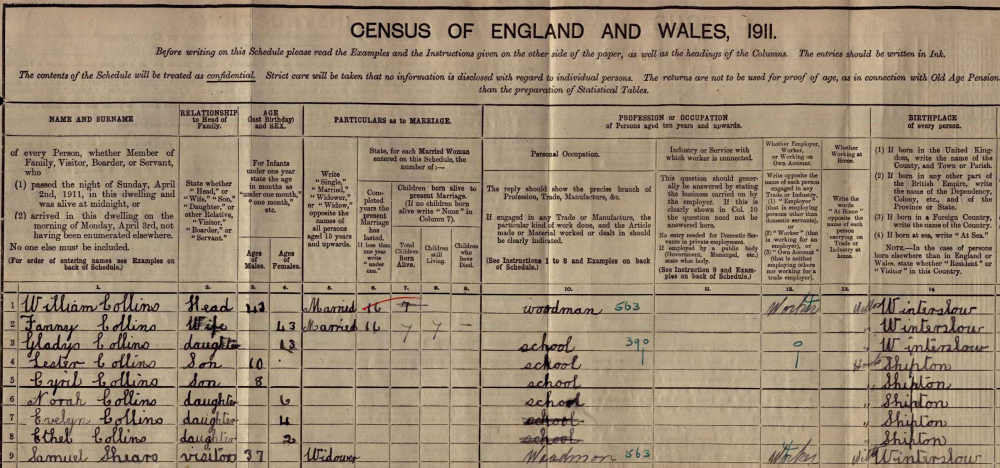 CENSUS OF ENGLAND AND WALES, 1911.
Before writing on this Schedule please read the Examples and the Instructions given on the other side of the paper, as well as the headings of the Columns. The entries should be written in Ink.
The contents of the Schedule will be treated as confidential. Strict care will be taken that no information is disclosed with regard to individual persons. The returns are not to be used for proof of age, as in connection with Old Age Pension
than the preparation of Statistical Tables.
NAME AND SURNAME
of every Person, whether Member of
Family, Visitor, Boarder, or Servant,
who
(1) passed the night of Sunday, April
2nd, 1911, in this dwelling and
was alive at midnight, or
(2) arrived in this dwelling on the
morning of Monday, April 3rd, not
having been enumerated elsewhere.
No one else must be included.
(For order of entering names see Examples on
back of Schedule.)
RELATIONSHIP
to Head of
Family.
State whether
"Head," or
"Wife," "Son,"
"Daughter," or
other Relative,
"Visitor,"
"Boarder," or
"Servant."
AGE
(last Birthday)
and SEX.
For Infants
under one year
state the age
in months as
"under one month,"
"one month,"
etc.
Ages
of
Males.
Ages
of
Females.
PARTICULARS as to MARRIAGE.
Write
"Single,"
"Married,"
"Widower,"
or "Widow,"
opposite the
names of
all persons
aged 15 years
and upwards.
State, for each Married Woman
entered on this Schedule, the
number of:—
Com-
pleted
years the
present
Marriage
has
lasted.
If less than
one year
write
"under
one."
Children born alive to
present Marriage.
(If no children born
alive write "None" in
Column 7).
Total
Children
Born
Alive.
Children
still
Living.
Children
who
have
Died.
PROFESSION or OCCUPATION
of Persons aged ten years and upwards.
Personal Occupation.
The reply should show the precise branch of
Profession, Trade, Manufacture, &c.
If engaged in any Trade or Manufacture, the
particular kind of work done, and the Article
made or Material worked or dealt in should
be clearly indicated.
(See Instructions 1 to 8 and Examples on back
of Schedule.)
Industry or Service with
which worker is connected.
This question should gener-
ally be answered by stating
the business carried on by
the employer. If this is
clearly shown in Col. 10
the question need not be
answered here.
No entry needed for Domestic Ser-
vants in private employment.
If employed by a public body
(Government, Municipal, etc.)
state what body.
(See Instruction 9 and Exam-
ples on back of Schedule.)
Whether Employer,
Worker,
or Working on
Own Account.
Write opposite the
name of each person
engaged in any
Trade or Industry,
(1) "Employer"
(that is employing
persons other than
domestic servants),
or
(2) "Worker" (that
is working for an
employer), or
(3) "Own Account"
(that is neither
employing others
nor working for a
trade employer).
Whether
Working at
Home.
Write the
words
"At Home"
opposite the
name of each
person
carrying on
Trade or
Industry at
home.
BIRTHPLACE
of every person.
(1) If born in the United King-
dom, write the name of the
County, and Town or Parish.
(2) If born in any other part of
the British Empire, write
the name of the Dependency,
Colony, etc., and of the
Province or State.
(3) If born in a Foreign Country,
write the name of the Country.
(4) If born at sea, write "At Sea."
NOTE.—In the case of persons
born elsewhere than in England or
Wales, state whether "Resident" or
"Visitor" in this Country.
1. 2. 3. 4. 5. 6. 7. 8. 9. 10. 11. 12. 13. 14
1 William Collins Head 43 Married 16 7 woodman 563 Worker Winterslow
2 Fanny Collins Wife 43 Married 16 7 7 – " Winterslow
3 Gladys Collins daughter 13 school 390 0 " Winterslow
4 Lester Collins Son 10 school Shipton
5 Cyril Collins Son 8 school " Shipton
6 Norah Collins daughter 6 school " Shipton
7 Evelyn Collins daughter 4 school " Shipton
8 Ethel Collins daughter 2 school " Shipton
9 Samuel Shears visitor 37 Widower Woodman 563 Worker Winterslow